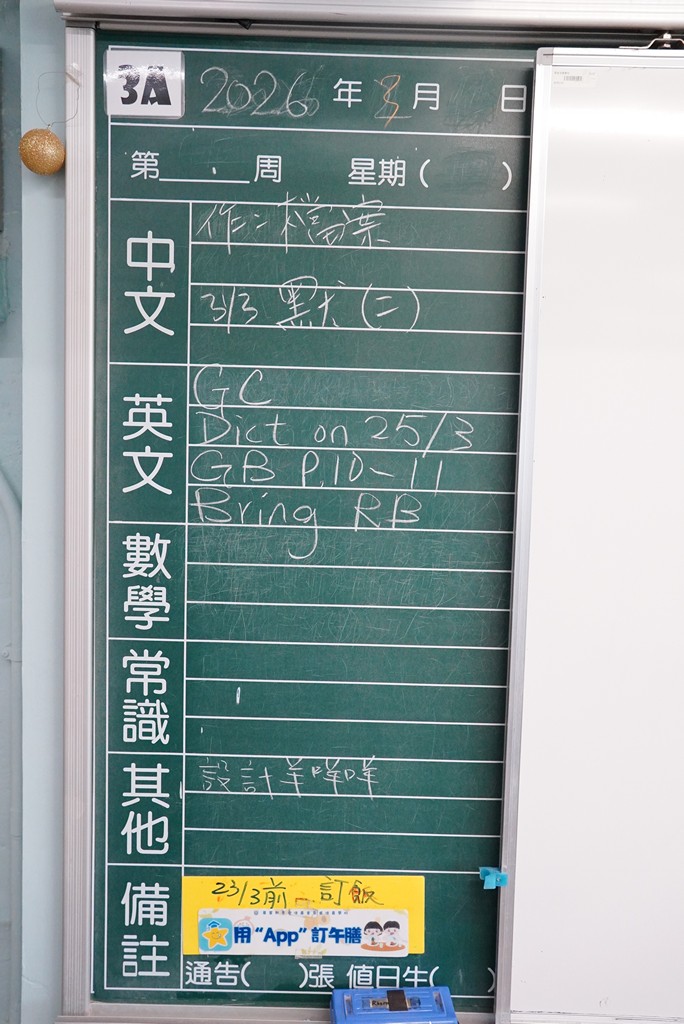 3A 2026年3月 日
第 周 星期( )
中文
作:檔案
3/3 默(二)
英文
GC
Dict on 25/3
GB P.10-11
Bring RB
數學
常識
其他
設計羊咩咩
備註
23/3前 訂飯
用“App”訂午膳
通告( )張 值日生( )